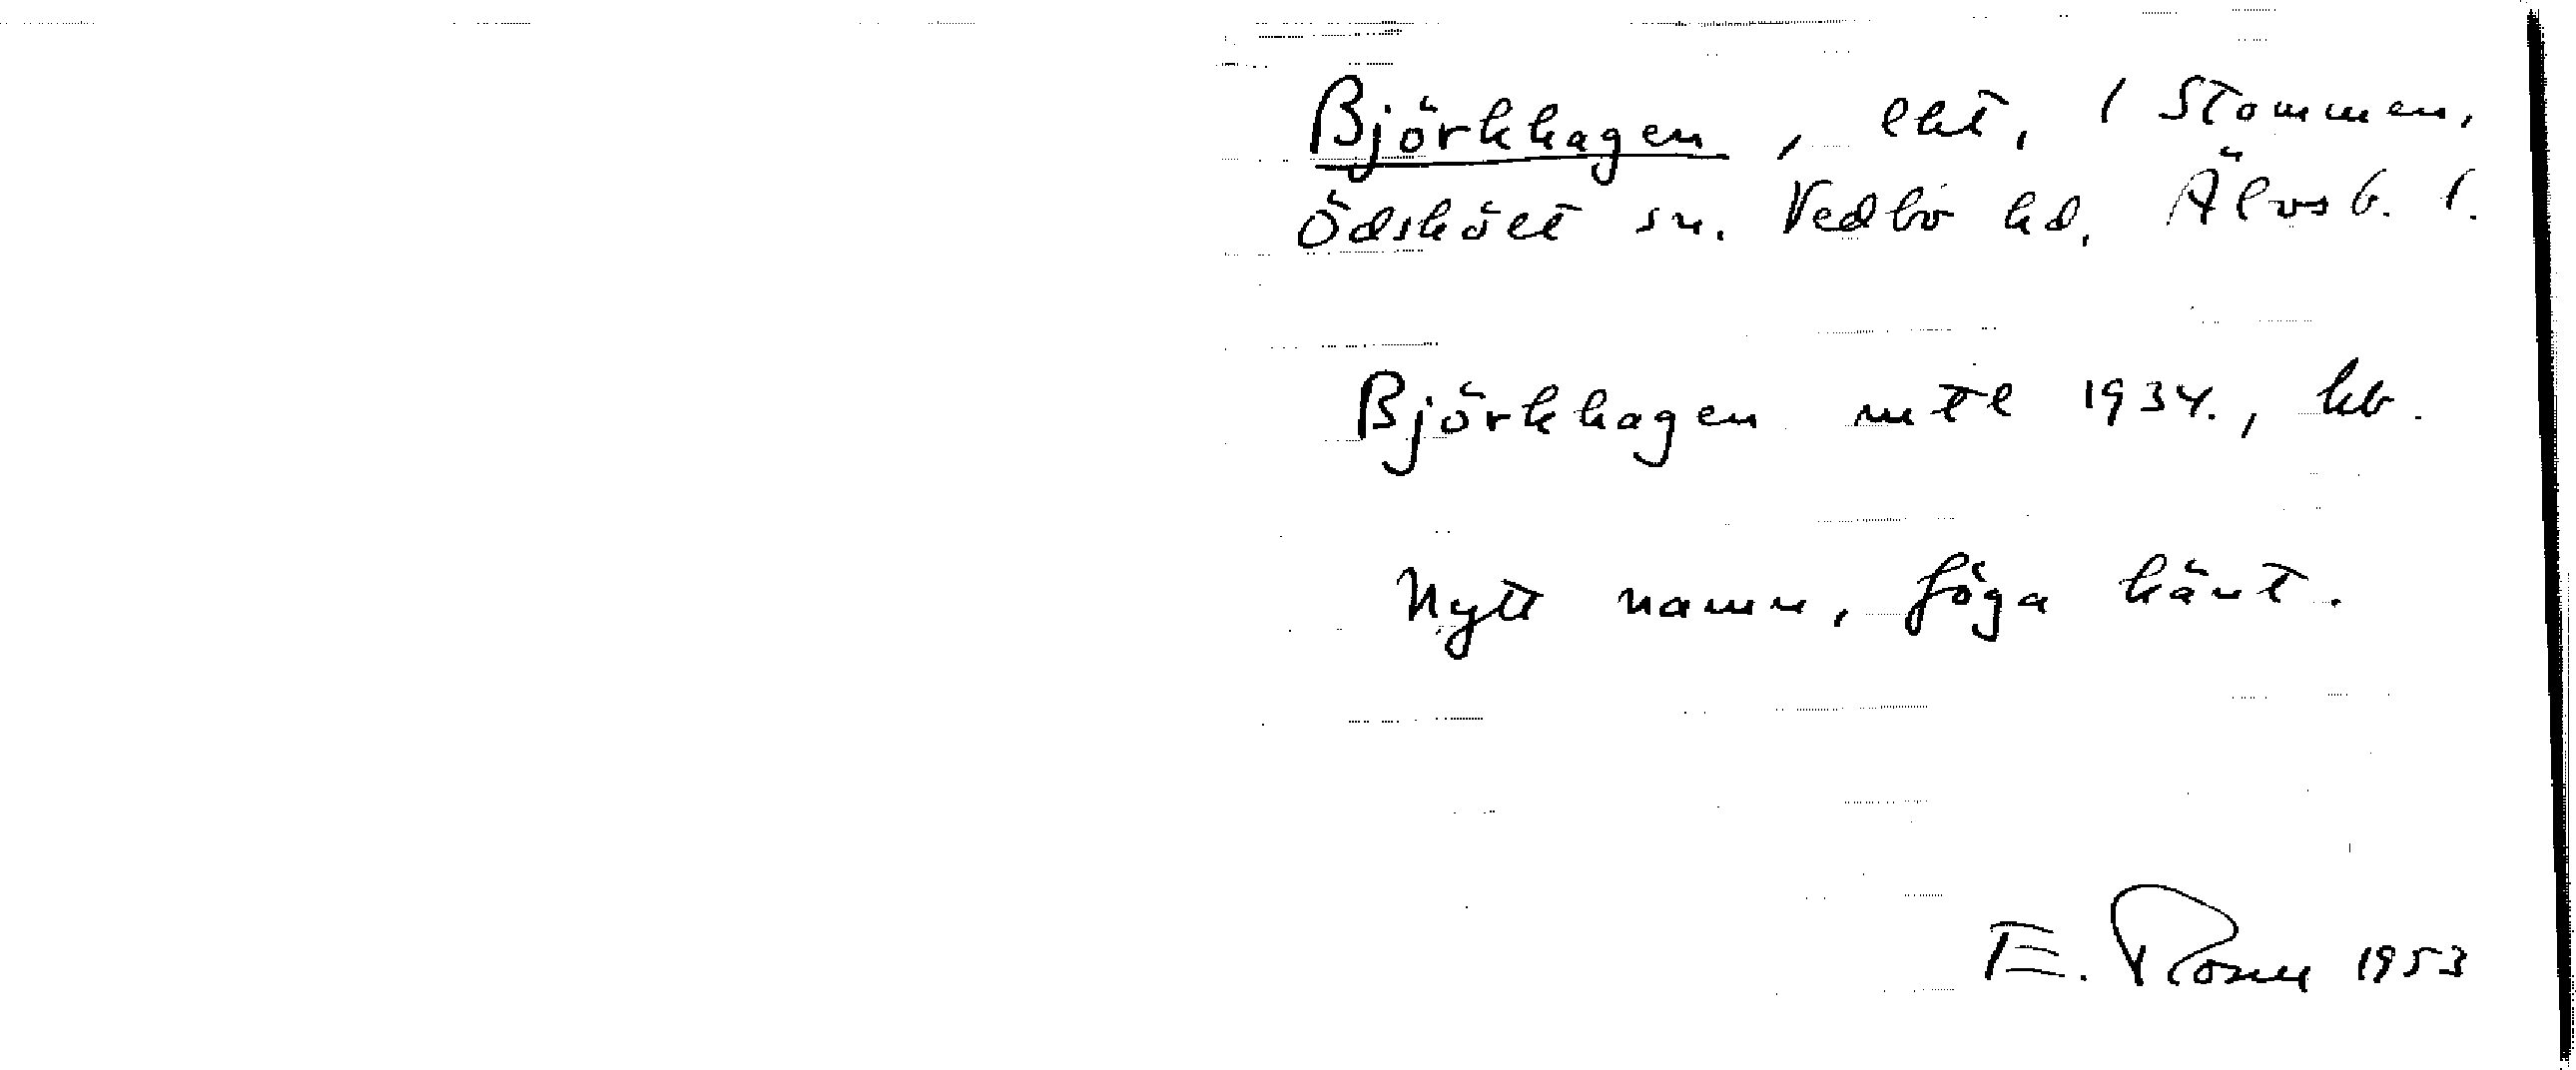 Björkhagen, lht, / Stommen,
Ödskölt sn. Vedbo hd. Älvsb. l.
Björkhagen mtl 1934., kb.
Nytt namn, föga känt.
E. Rosell 1953